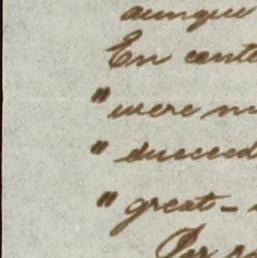 aunque
En conte
"were m
"succeed
"great –
Por